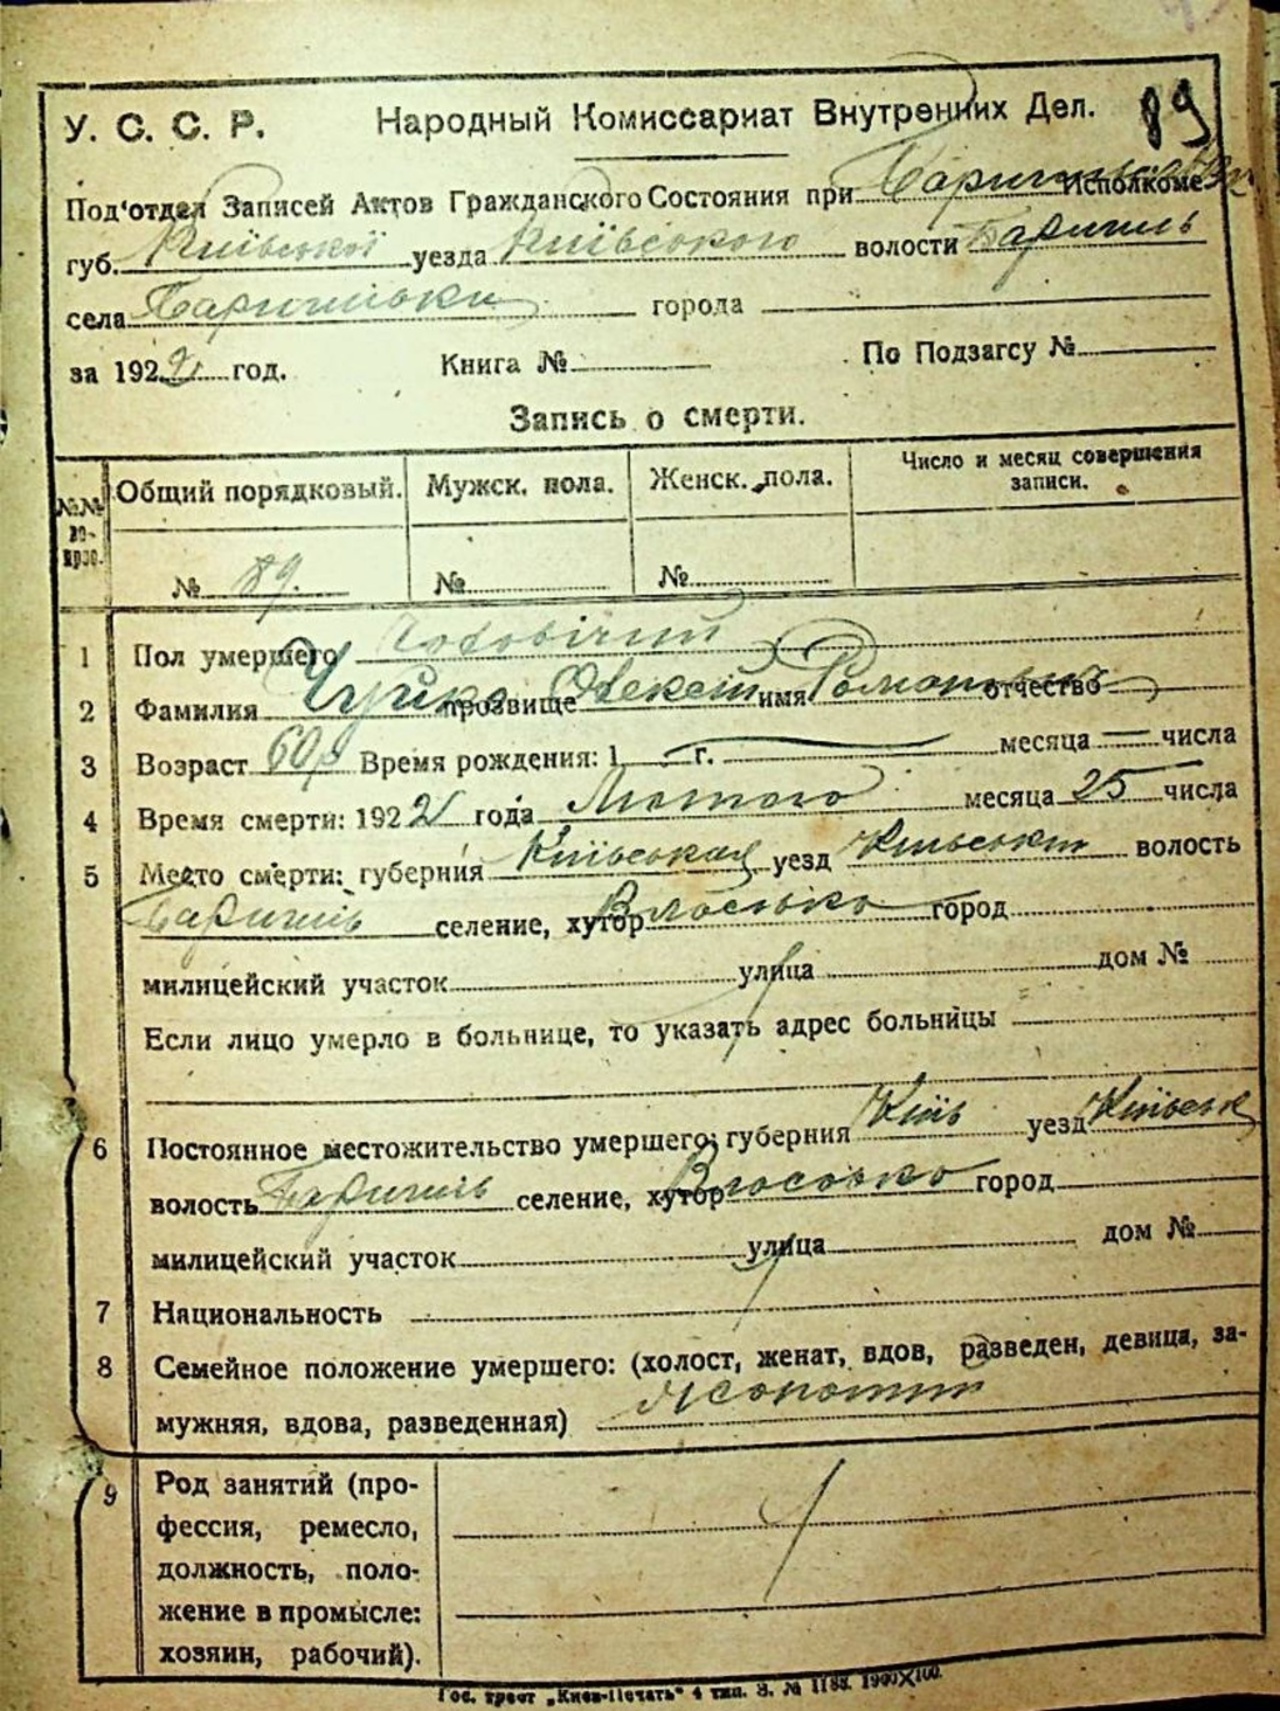 89
У. С. С. Р. Народный Комиссариат Внутренних Дел.
Под'отдел Записей Актов Гражданского Состояния при Исполкоме
губ. Київської уезда Київського волости Баришль
села Баришівки города
за 1922 год. Книга № По Подзагсу №
Запись о смерти.
№№ во- прос. Общий порядковый. Мужск. пола. Женск. пола. Число и месяц совершения записи.
№ 89. № №
1 Пол умершего Чоловічий
2 Фамилия Чуйко прозвище Олексій имя Романович отчество
3 Возраст 60 р Время рождения: 1 г. месяца — числа
4 Время смерти: 1922 года Лютого месяца 25 числа
5 Место смерти: губерния Київская уезд Київський волость
Баришль селение, хутор город
милицейский участок улица дом №
Если лицо умерло в больнице, то указать адрес больницы
6 Постоянное местожительство умершего: губерния Київ уезд Київськ
волость Баришль селение, хутор город
милицейский участок улица дом №
7 Национальность
8 Семейное положение умершего: (холост, женат, вдов, разведен, девица, за-
мужняя, вдова, разведенная) Жонатий
9 Род занятий (про-
фессия, ремесло,
должность, поло-
жение в промысле:
хозяин, рабочий).
Гос. трест „Киев-Печать“ 4 тип. З. № 1188. 1900X100.